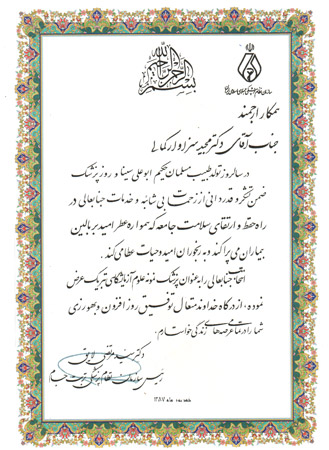 بسم الله الرحمن الرحیم
همکار ارجمند
جناب آقای دکتر مجید سزاوار کمالی
در سالروز تولد طبیب مسلمان حکیم ابوعلی سینا و روز پزشک
ضمن تشکر و قدردانی از زحمات بی شائبه و خدمات جنابعالی در
راه حفظ و ارتقای سلامت جامعه که همواره عطر امید بر بالین
بیماران می پراکند و به رنجوران امید و حیات عطا می کند.
انتخاب جنابعالی را به عنوان پزشک نمونه علوم آزمایشگاهی تبریک عرض
نموده، از درگاه خداوند متعال توفیق روز افزون و بهورزی
شما را در تمامی عرصه های زندگی خواستارم.
دکتر سید
رئیس سازمان نظام پزشکی
شهریور ماه ۱۳۸۷